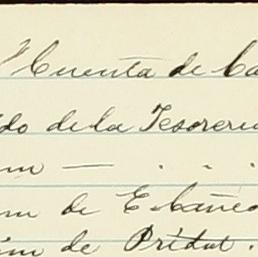 Cuenta de Ca
do de la Tesoreria
m — . . .
m de E. Cañeo
im de Pridat.